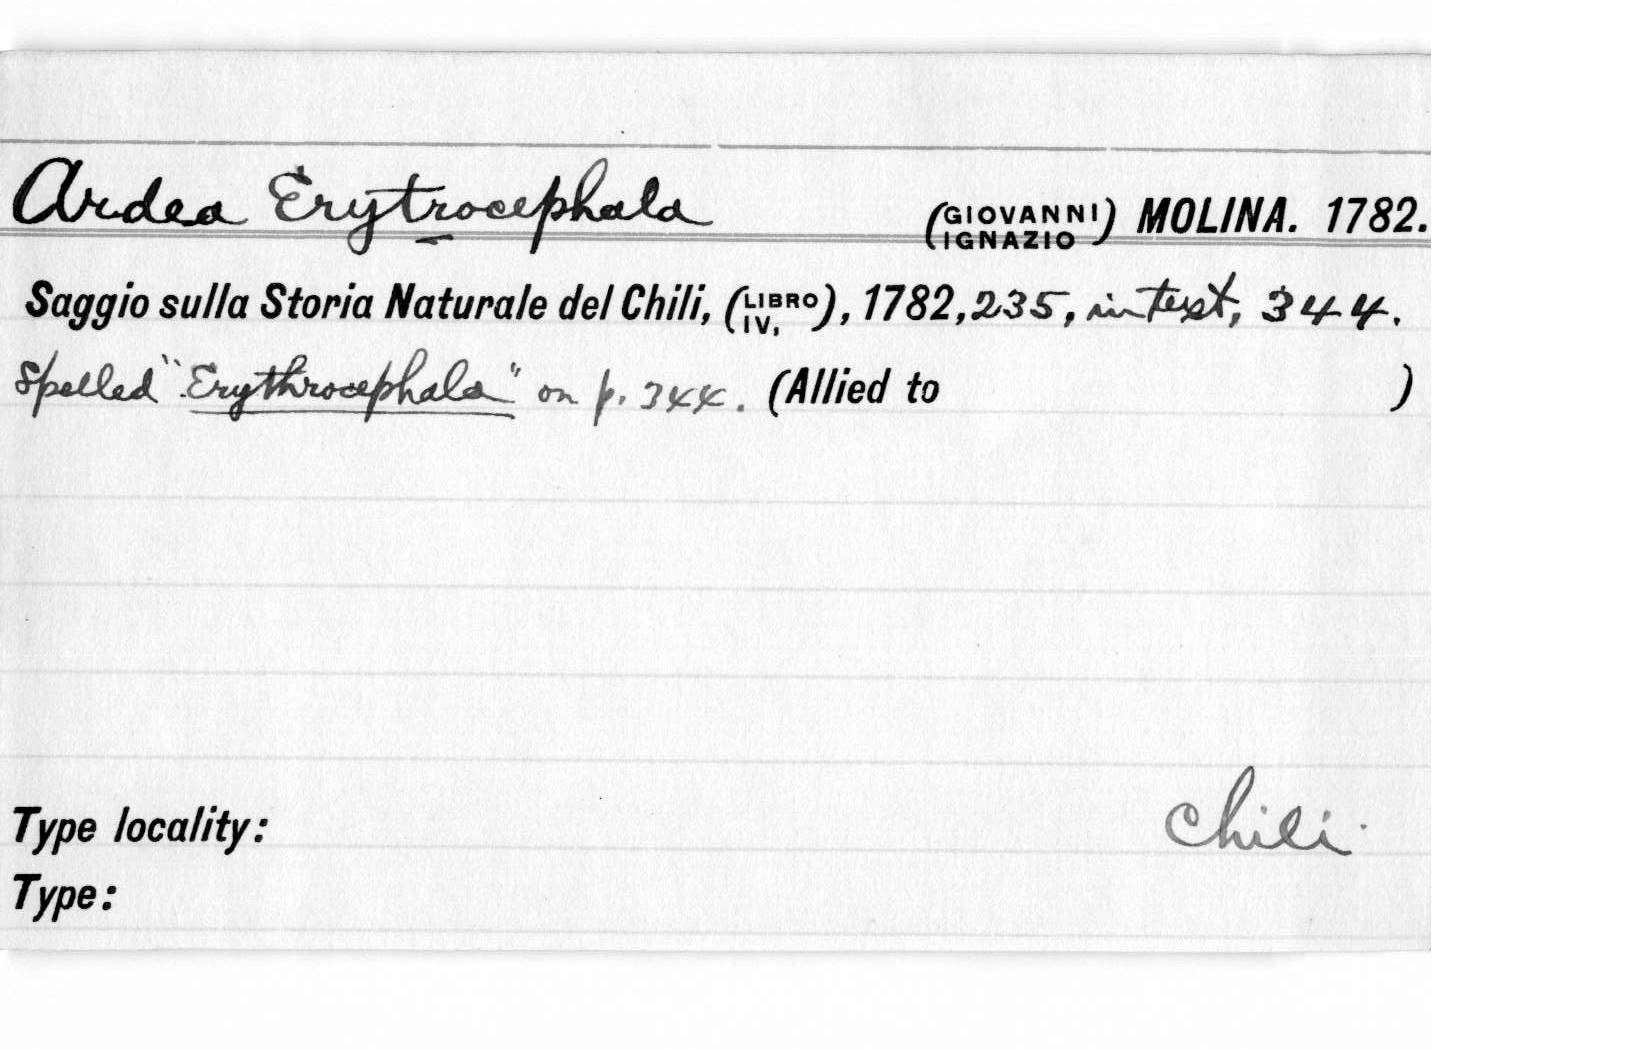 Ardea Erytrocephala (GIOVANNI IGNAZIO) MOLINA. 1782.
Saggio sulla Storia Naturale del Chili, (LIBRO IV,), 1782, 235, in text, 344.
Spelled "Erythrocephala" on p. 344. (Allied to )
Type locality: Chili.
Type: